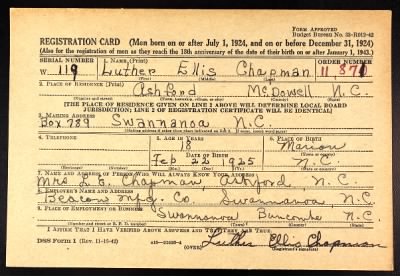 FORM APPROVED
Budget Bureau No. 33-R012-42
REGISTRATION CARD (Men born on or after July 1, 1924, and on or before December 31, 1924)
(Also for the registration of men as they reach the 18th anniversary of the date of their birth on or after January 1, 1943.)
SERIAL NUMBER 1. NAME (Print) ORDER NUMBER
W 119 Luther Ellis Chapman 11,871
(First) (Middle) (Last)
2. PLACE OF RESIDENCE (Print)
Ashford McDowell N.C.
(Number and street) (Town, township, village, or city) (County) (State)
[THE PLACE OF RESIDENCE GIVEN ON LINE 2 ABOVE WILL DETERMINE LOCAL BOARD
JURISDICTION; LINE 2 OF REGISTRATION CERTIFICATE WILL BE IDENTICAL]
3. MAILING ADDRESS
Box 789 Swannanoa N.C.
[Mailing address if other than place indicated on line 2. If same, insert word same]
4. TELEPHONE 5. AGE IN YEARS 6. PLACE OF BIRTH
18 Marion
DATE OF BIRTH (Town or county)
Feb 22 1925 N.C.
(Exchange) (Number) (Mo.) (Day) (Yr.) (State or country)
7. NAME AND ADDRESS OF PERSON WHO WILL ALWAYS KNOW YOUR ADDRESS
Mrs L.E. Chapman Ashford, N.C.
8. EMPLOYER'S NAME AND ADDRESS
Beacon Mfg. Co. Swannanoa N.C.
9. PLACE OF EMPLOYMENT OR BUSINESS
Swannanoa Buncombe N.C.
(Number and street or R. F. D. number) (Town) (County) (State)
I AFFIRM THAT I HAVE VERIFIED ABOVE ANSWERS AND THAT THEY ARE TRUE.
DSS Form 1 (Rev. 11-16-42) (OVER) Luther Ellis Chapman